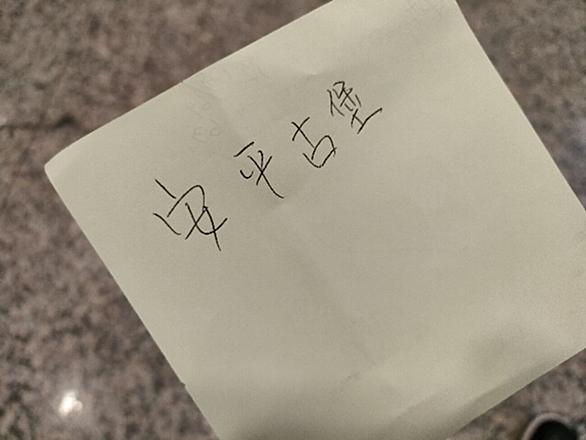 安平古堡